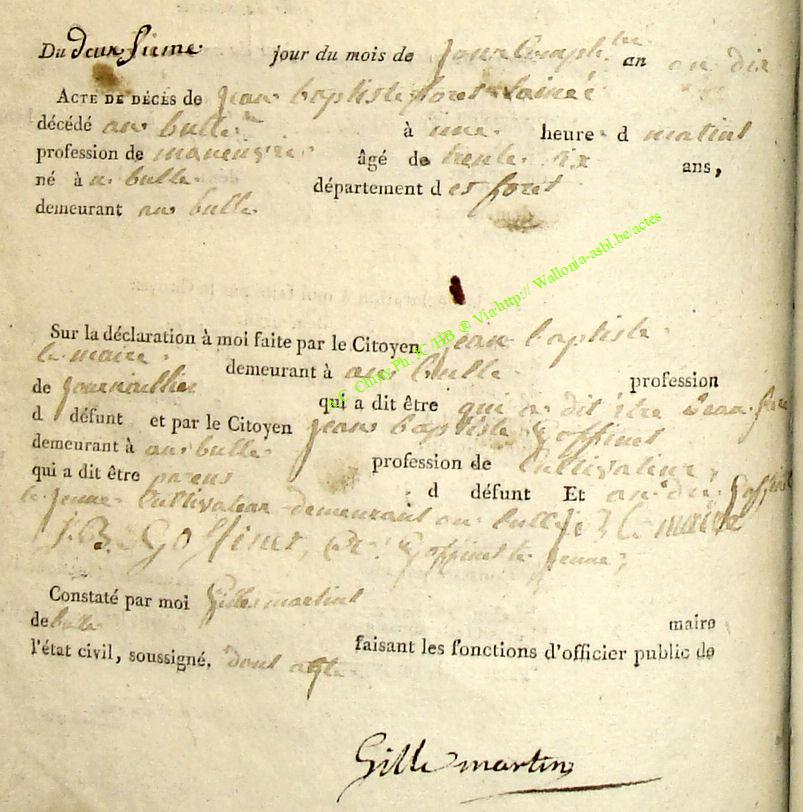 Du deuxsieme jour du mois de jour Complt.re an an dix
ACTE DE DÉCÈS de jean baptiste fores lainée
décédé au bulle à une heure d matins
profession de maneuvre âgé de trente six ans,
né à u bulle département d es foret
demeurant au bulle
Sur la déclaration à moi faite par le Citoyen jean baptiste
le maire demeurant à au bulle profession
de journaillier qui a dit être qui a dit être beau frere
d défunt et par le Citoyen jean baptiste Goffinet
demeurant à au bulle profession de Cultivateur,
qui a dit être parens d défunt Et Goffinet
le jeune Cultivateur demeurant au bulle J B le maire
J. B. Goffinet, Goffinet le jeune,
Constaté par moi Gilles martin maire
de bulle faisant les fonctions d'officier public de
l'état civil, soussigné. dont acte
Gille martin
Ph. JC HB ® Via http:// Wallonia-asbl.be/actes